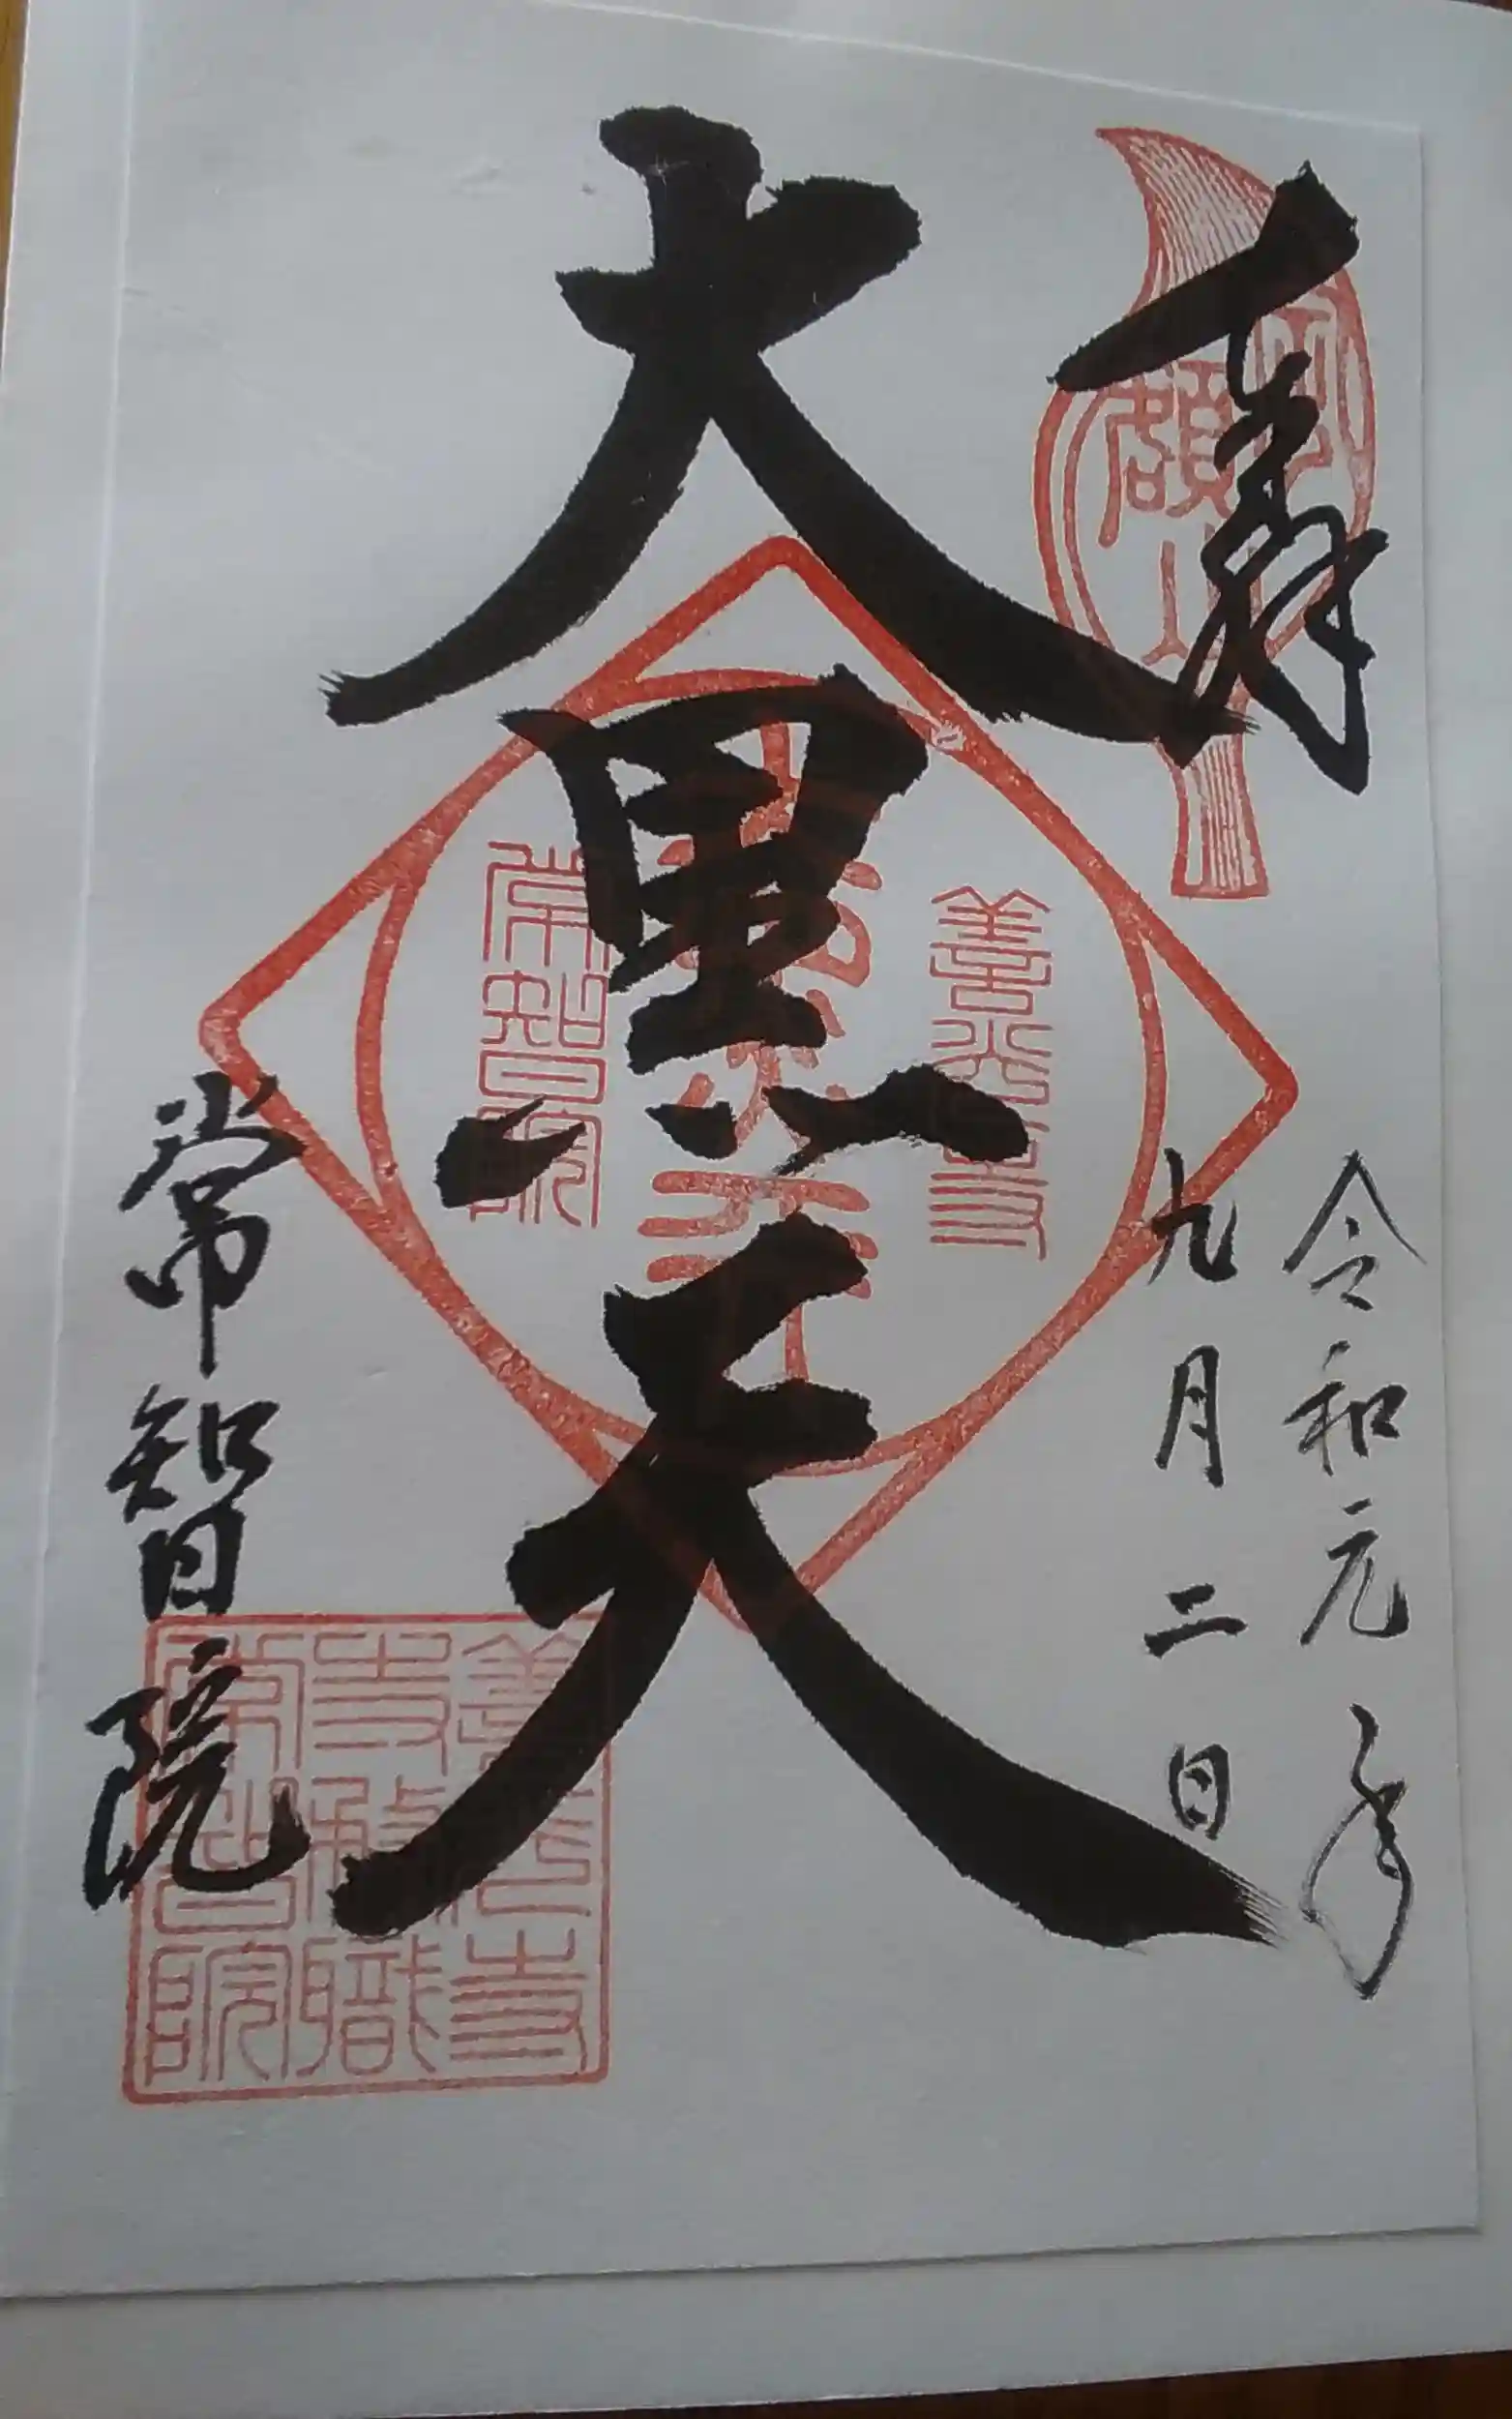 奉拝
令和元年
九月二日
大黒天
善光寺
常智院
常智院
善光寺
常智院